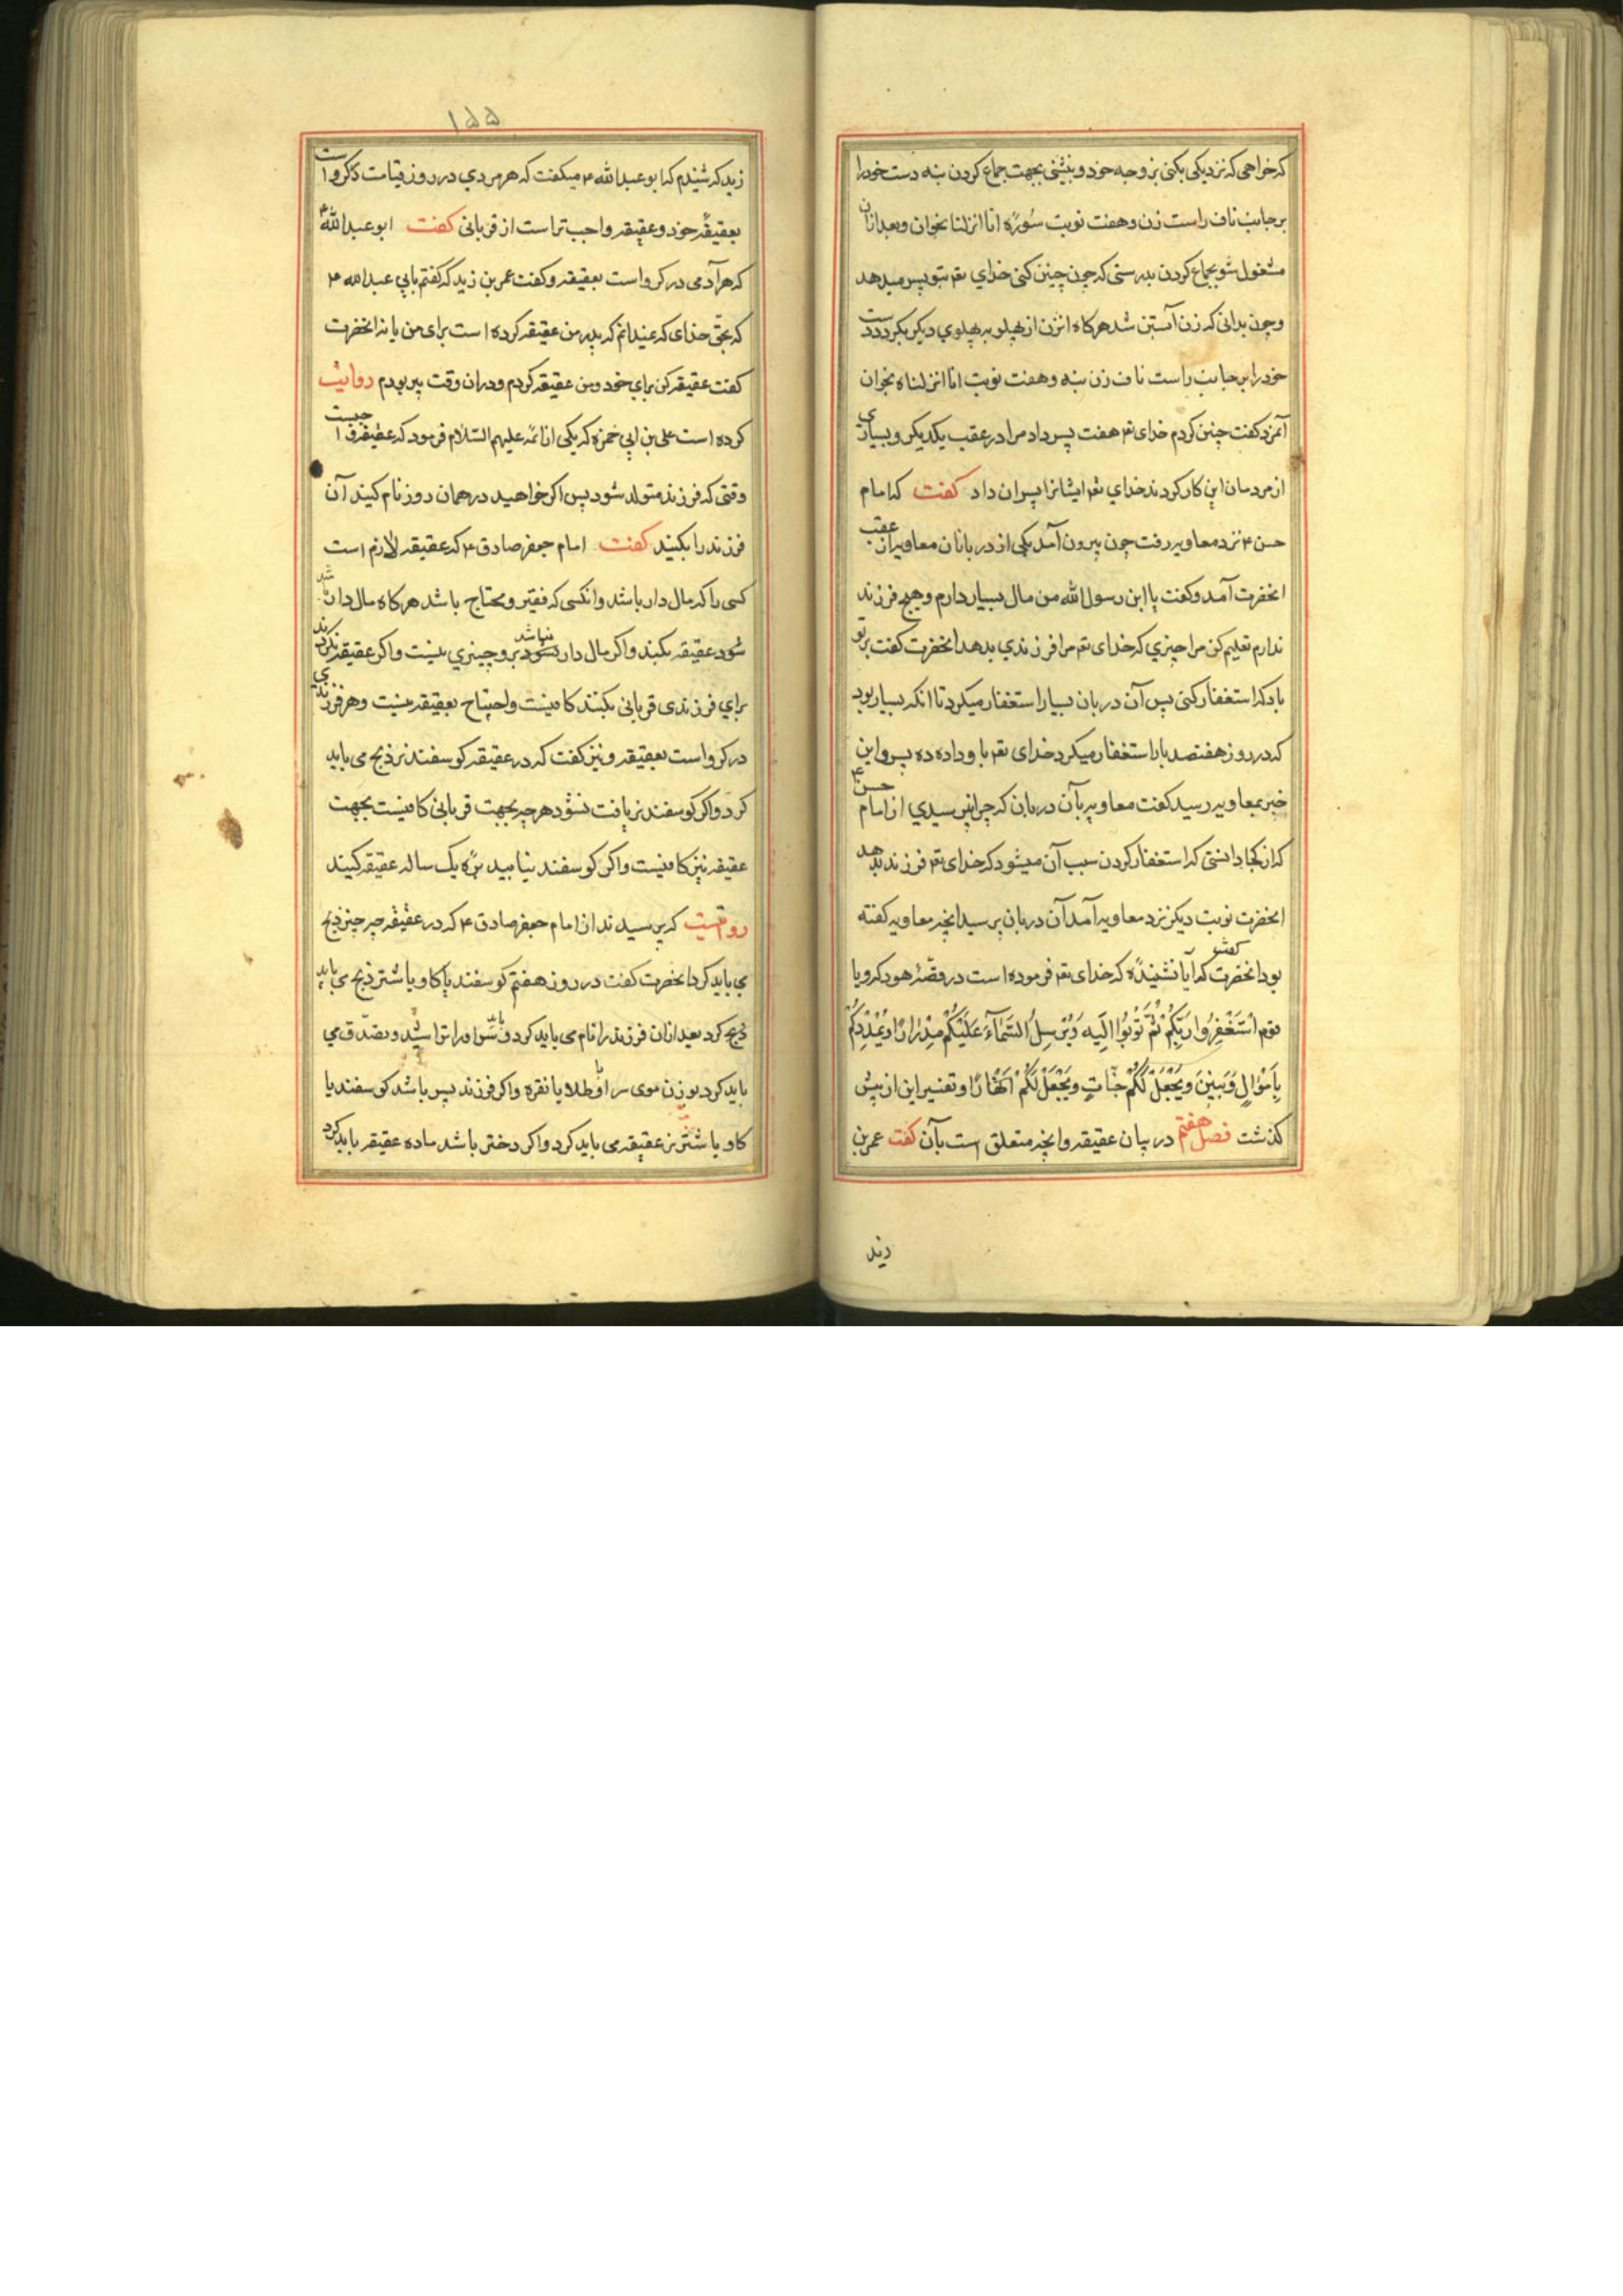 که خواهی که نزدیکی بکنی بزوجه خود و بنشینی بجهت جماع کردن بنه دست خود را
بر جانب ناف راست زن و هفت نوبت سُورهٔ انا انزلنا بخوان و بعد ازان
مشغول شو بجماع کردن بدرستی که چون چنین کنی خدای تعم بتو پسر میدهد
و چون بدانی که زن آبستن شد هرکاه انزن از پهلو به پهلوی دیکر بکردد دست
خود را بر جانب راست ناف زن بنه و هفت نوبت انا انزلناه بخوان
آنمزد کفت چنین کردم خدای تعم هفت پسر داد مرا در عقب یکدیکر و بسیاری
از مردمان این کار کردند خدای تعم ایشانرا پسران داد کفت که امام
حسن ۴ نزد معاویه رفت چون بیرون آمد یکی از دربانان معاویه از عقب
انحضرت آمد و کفت یا ابن رسول الله من مال بسیار دارم و هیچ فرزند
ندارم تعلیم کن مرا چیزی که خدای تعم مرا فرزندی بدهد انحضرت کفت بر تو
باد که استغفار کنی پس آن دربان بسیار استغفار میکرد تا انکه بسیار بود
که در روز هفتصد بار استغفار میکرد خدای تعم باو داده ده پسر و این
خبر بمعاویه رسید کفت معاویه بآن دربان که چرا نپرسیدی از امام حسن ۴
که از کجا دانستی که استغفار کردن سبب آن میشود که خدای تعم فرزند بدهد
انحضرت نوبت دیکر نزد معاویه آمد آن دربان پرسید انچه معاویه کفته
بود انحضرت کفتش که آیا نشنیدهٔ که خدای تعم فرموده است در قصّهٔ هود که و یا
قوم اسْتَغْفِرُوا رَبَّكُمْ ثُمَّ تُوبُوا اِلَیهِ وَ یُرْسِلُ السَّمَآءَ عَلَیْكُمْ مِدْرَارًا وَ یُمْدِدْكُمْ
بِاَمْوَالٍ وَ بَنِینَ وَ یَجْعَلْ لَكُمْ جَنَّاتٍ وَ یَجْعَلْ لَكُمْ اَنْهَارًا و تفسیر این از پیش
کذشت فصل هفتم در بیان عقیقه و انچه متعلق است بآن کفت عمر بن
زید
۱۵۵
زید که شنیدم که ابو عبدالله ۴ میکفت که هر مردی در روز قیامت در کرو است
بعقیقهٔ خود و عقیقه واجب تر است از قربانی کفت ابو عبدالله ۴
که هر آدمی در کرو است بعقیقه و کفت عمر بن زید که کفتم بابی عبدالله ۴
که بحق خدای که نمیدانم که پدر من عقیقه کرده است برای من یا نه انحضرت
کفت عقیقه کن برای خود و من عقیقه کردم و دران وقت پیر بودم روایت
کرده است علی بن ابی حمزه که یکی از ائمه علیهم السّلام فرمود که عقیقه واجبست
وقتی که فرزند متولد شود پس اکر خواهید در همان روز نام کنید آن
فرزند را بکنید کفت امام جعفر صادق ۴ که عقیقه لازم است
کسی را که مال دار باشد و انکسی که فقیر و محتاج باشد هرکاه مال دار
شود عقیقه بکند و اکر مال دار نشود برو چیزی نیست و اکر عقیقه نکردند
برای فرزندی قربانی بکنند کافیست و احتیاج بعقیقه نیست و هر فرزندی
در کرو است بعقیقه و نیز کفت که در عقیقه کوسفند نر ذبح می باید
کرد و اکر کوسفند نر یافت نشود هرچه بجهت قربانی کافیست بجهت
عقیقه نیز کافیست و اکر کوسفند نیابید برّهٔ یک ساله عقیقه کنید
روایتست که پرسیدند از امام جعفر صادق ۴ که در عقیقه چه چیز ذبح
می باید کرد انحضرت کفت در روز هفتم کوسفند یا کاو یا شتر ذبح می باید
ذبح کرد بعد ازان فرزند را نام می باید کرد و سر او را تراشید و تصدّق می
باید کرد بوزن موی سر او طلا یا نقره و اکر فرزند پسر باشد کوسفند یا
کاو یا شتر نر عقیقه می باید کرد و اکر دختر باشد ماده عقیقه باید کرد